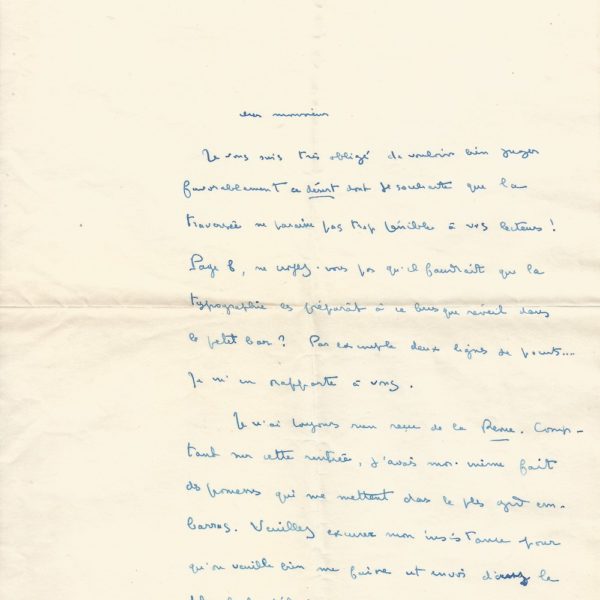 cher monsieur
Je vous suis très obligé de vouloir bien juger
favorablement ce désert dont je souhaite que la
traversée ne paraisse pas trop pénible à vos lecteurs !
Page 8, ne croyez-vous pas qu'il faudrait que la
typographie les préparât à ce brusque réveil dans
le petit bar ? Par exemple deux lignes de points....
Je m'en rapporte à vous.
Je n'ai toujours rien reçu de la Revue. Comp-
tant sur cette rentrée, j'avais moi-même fait
des promesses qui me mettent dans le plus grd em-
barras. Veuillez excuser mon insistance pour
qu'on veuille bien me faire cet envoi le